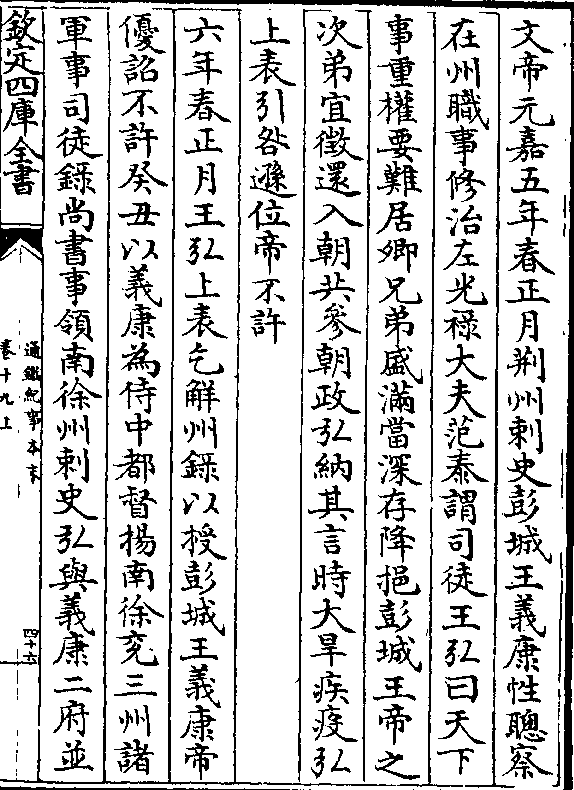 文帝元嘉五年春正月荆州刺史彭城王義康性聰察
在州職事修治左光祿大夫范泰謂司徒王弘曰天下
事重權要難居卿兄弟盛滿當深存降挹彭城王帝之
次弟宜徵還入朝共參朝政弘納其言時大旱疾疫弘
上表引咎遜位帝不許
六年春正月王弘上表乞解州錄以授彭城王義康帝
優詔不許癸丑以義康為侍中都督揚南徐兖三州諸
軍事司徒錄尚書事領南徐州刺史弘與義康二府並
欽定四庫全書
通鑑紀事本末
卷十九上
四十六